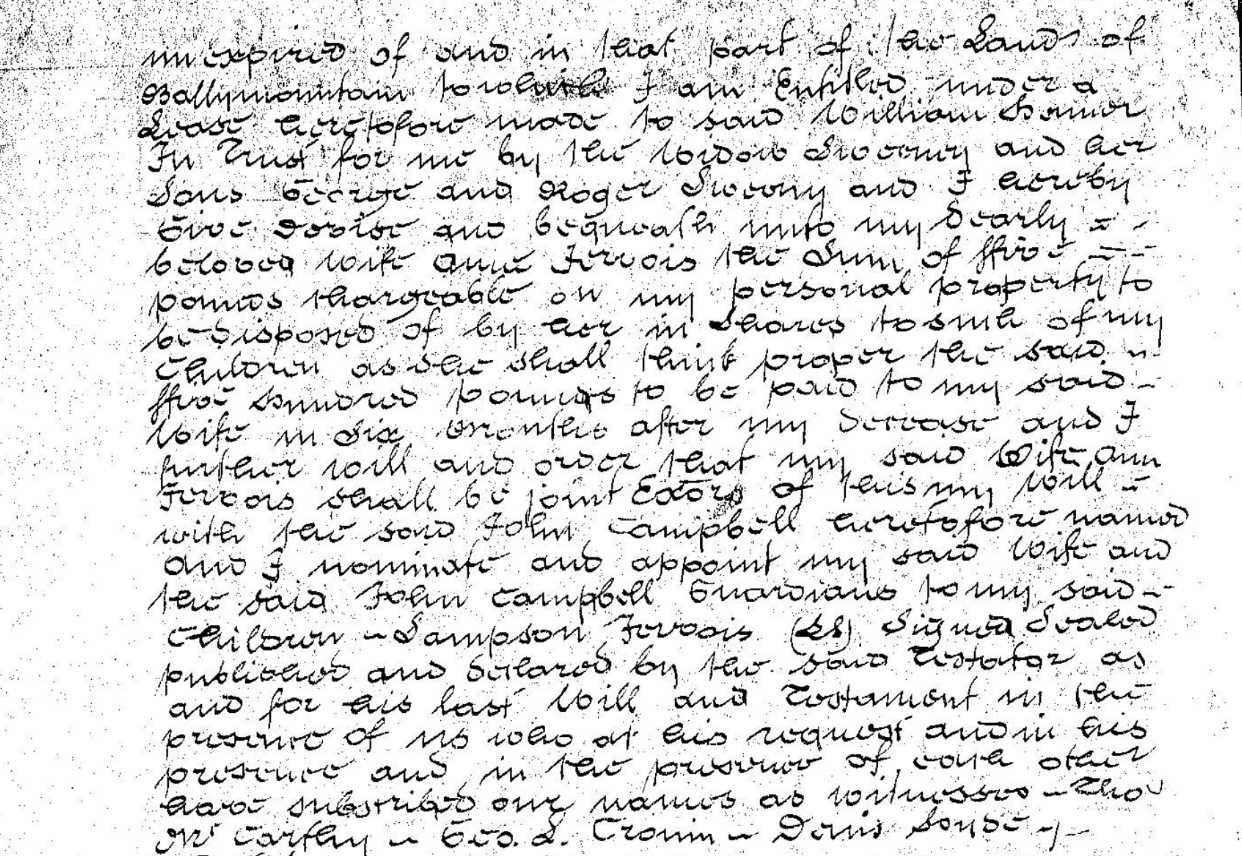 unexpired of and in that part of the Lands of
Ballymountain to which I am Entitled under a
Lease heretofore made to said William Connor
In Trust for me by the Widow Sweeney and her
Sons George and Roger Sweeny and I hereby
Give Devise and bequeath unto my dearly =
beloved Wife Anne Jervois the Sum of ffive = =
pounds chargeable on my personal property to
be disposed of by her in Shares to such of my
Children as she shall think proper the said
ffive hundred pounds to be paid to my said -
Wife in Six Months after my decease and I
further will and order that my said Wife Ann
Jervois shall be joint Exors of this my Will -
with the said John Campbell heretofore named
and I nominate and appoint my said Wife and
the said John Campbell Guardians to my said -
Children - Sampson Jervois (LS) Signed Sealed
published and declared by the said Testator as
and for his last Will and Testament in the
presence of us who at his request and in his
presence and in the presence of each other
have subscribed our names as witnesses - Thos
McCarthy - Geo. L. Cronin - Denis -